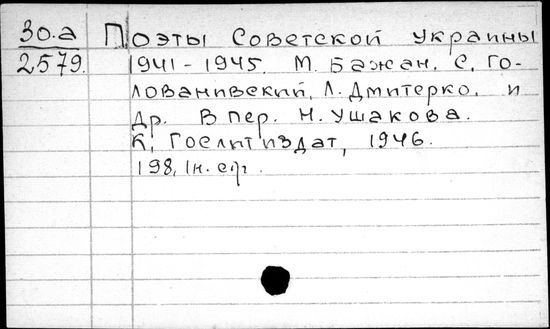 30.а
2579.
Поэты Советской Украины
1941-1945. М. Бажан. С. Го-
лованивский, Л. Дмитерко. и
др. В пер. Н. Ушакова.
К, Гослитиздат, 1946.
198, 1н. стр.